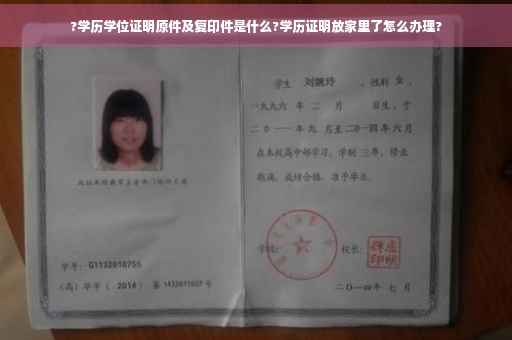 ?学历学位证明原件及复印件是什么?学历证明放家里了怎么办理?
学生 刘婉玲 ,性别 女 ,
一九九六 年 二 月 日生,于
二〇一一年九 月至二〇一四年六月
在本校高中部学习,学制 三年,修业
期满,成绩合格,准予毕业。
学号: G1132010755
学校: 校长:
(高)毕字( 2014 )第 1432011027 号
二〇一四年 七 月